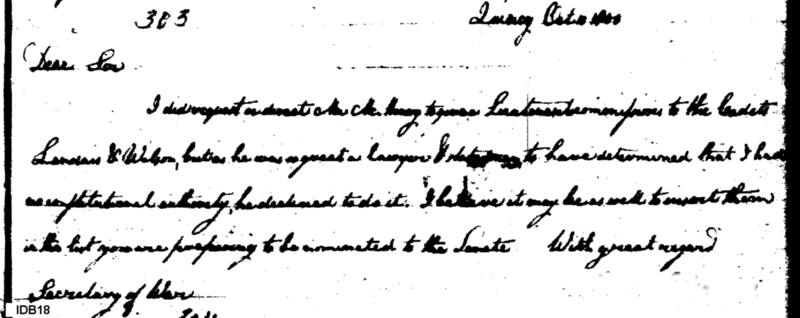 383 Quincy Oct 10 1800
Dear Sir
I did request or direct Mr. Mc. Henry to give Lieutenants commissions to the Cadets
Landais & Wilson, but as he was so great a lawyer to have determined that I had
no constitutional authority, he declined to do it. I believe it may be as well to insert them
in the list you are preparing to be nominated to the Senate With great regard
Secretary of War
IDB18